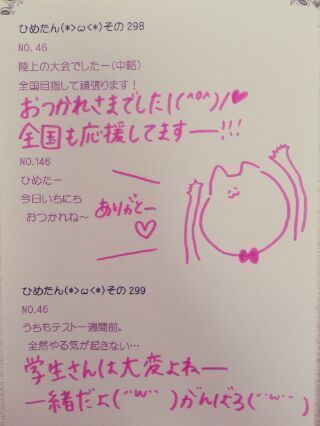 ひめたん(*>ω<*)その298
NO.46
陸上の大会でしたー(中略)
全国目指して頑張ります!
おつかれさまでした!(^o^)/♥
全国も応援してますー!!!
NO.146
ひめたー
今日いちにち
おつかれね〜
ありがとー♡
ひめたん(*>ω<*)その299
NO.46
うちもテスト一週間前。
全然やる気が起きない…
学生さんは大変よねー
一緒だよ(¨ω¨)がんばろ(¨ω¨)